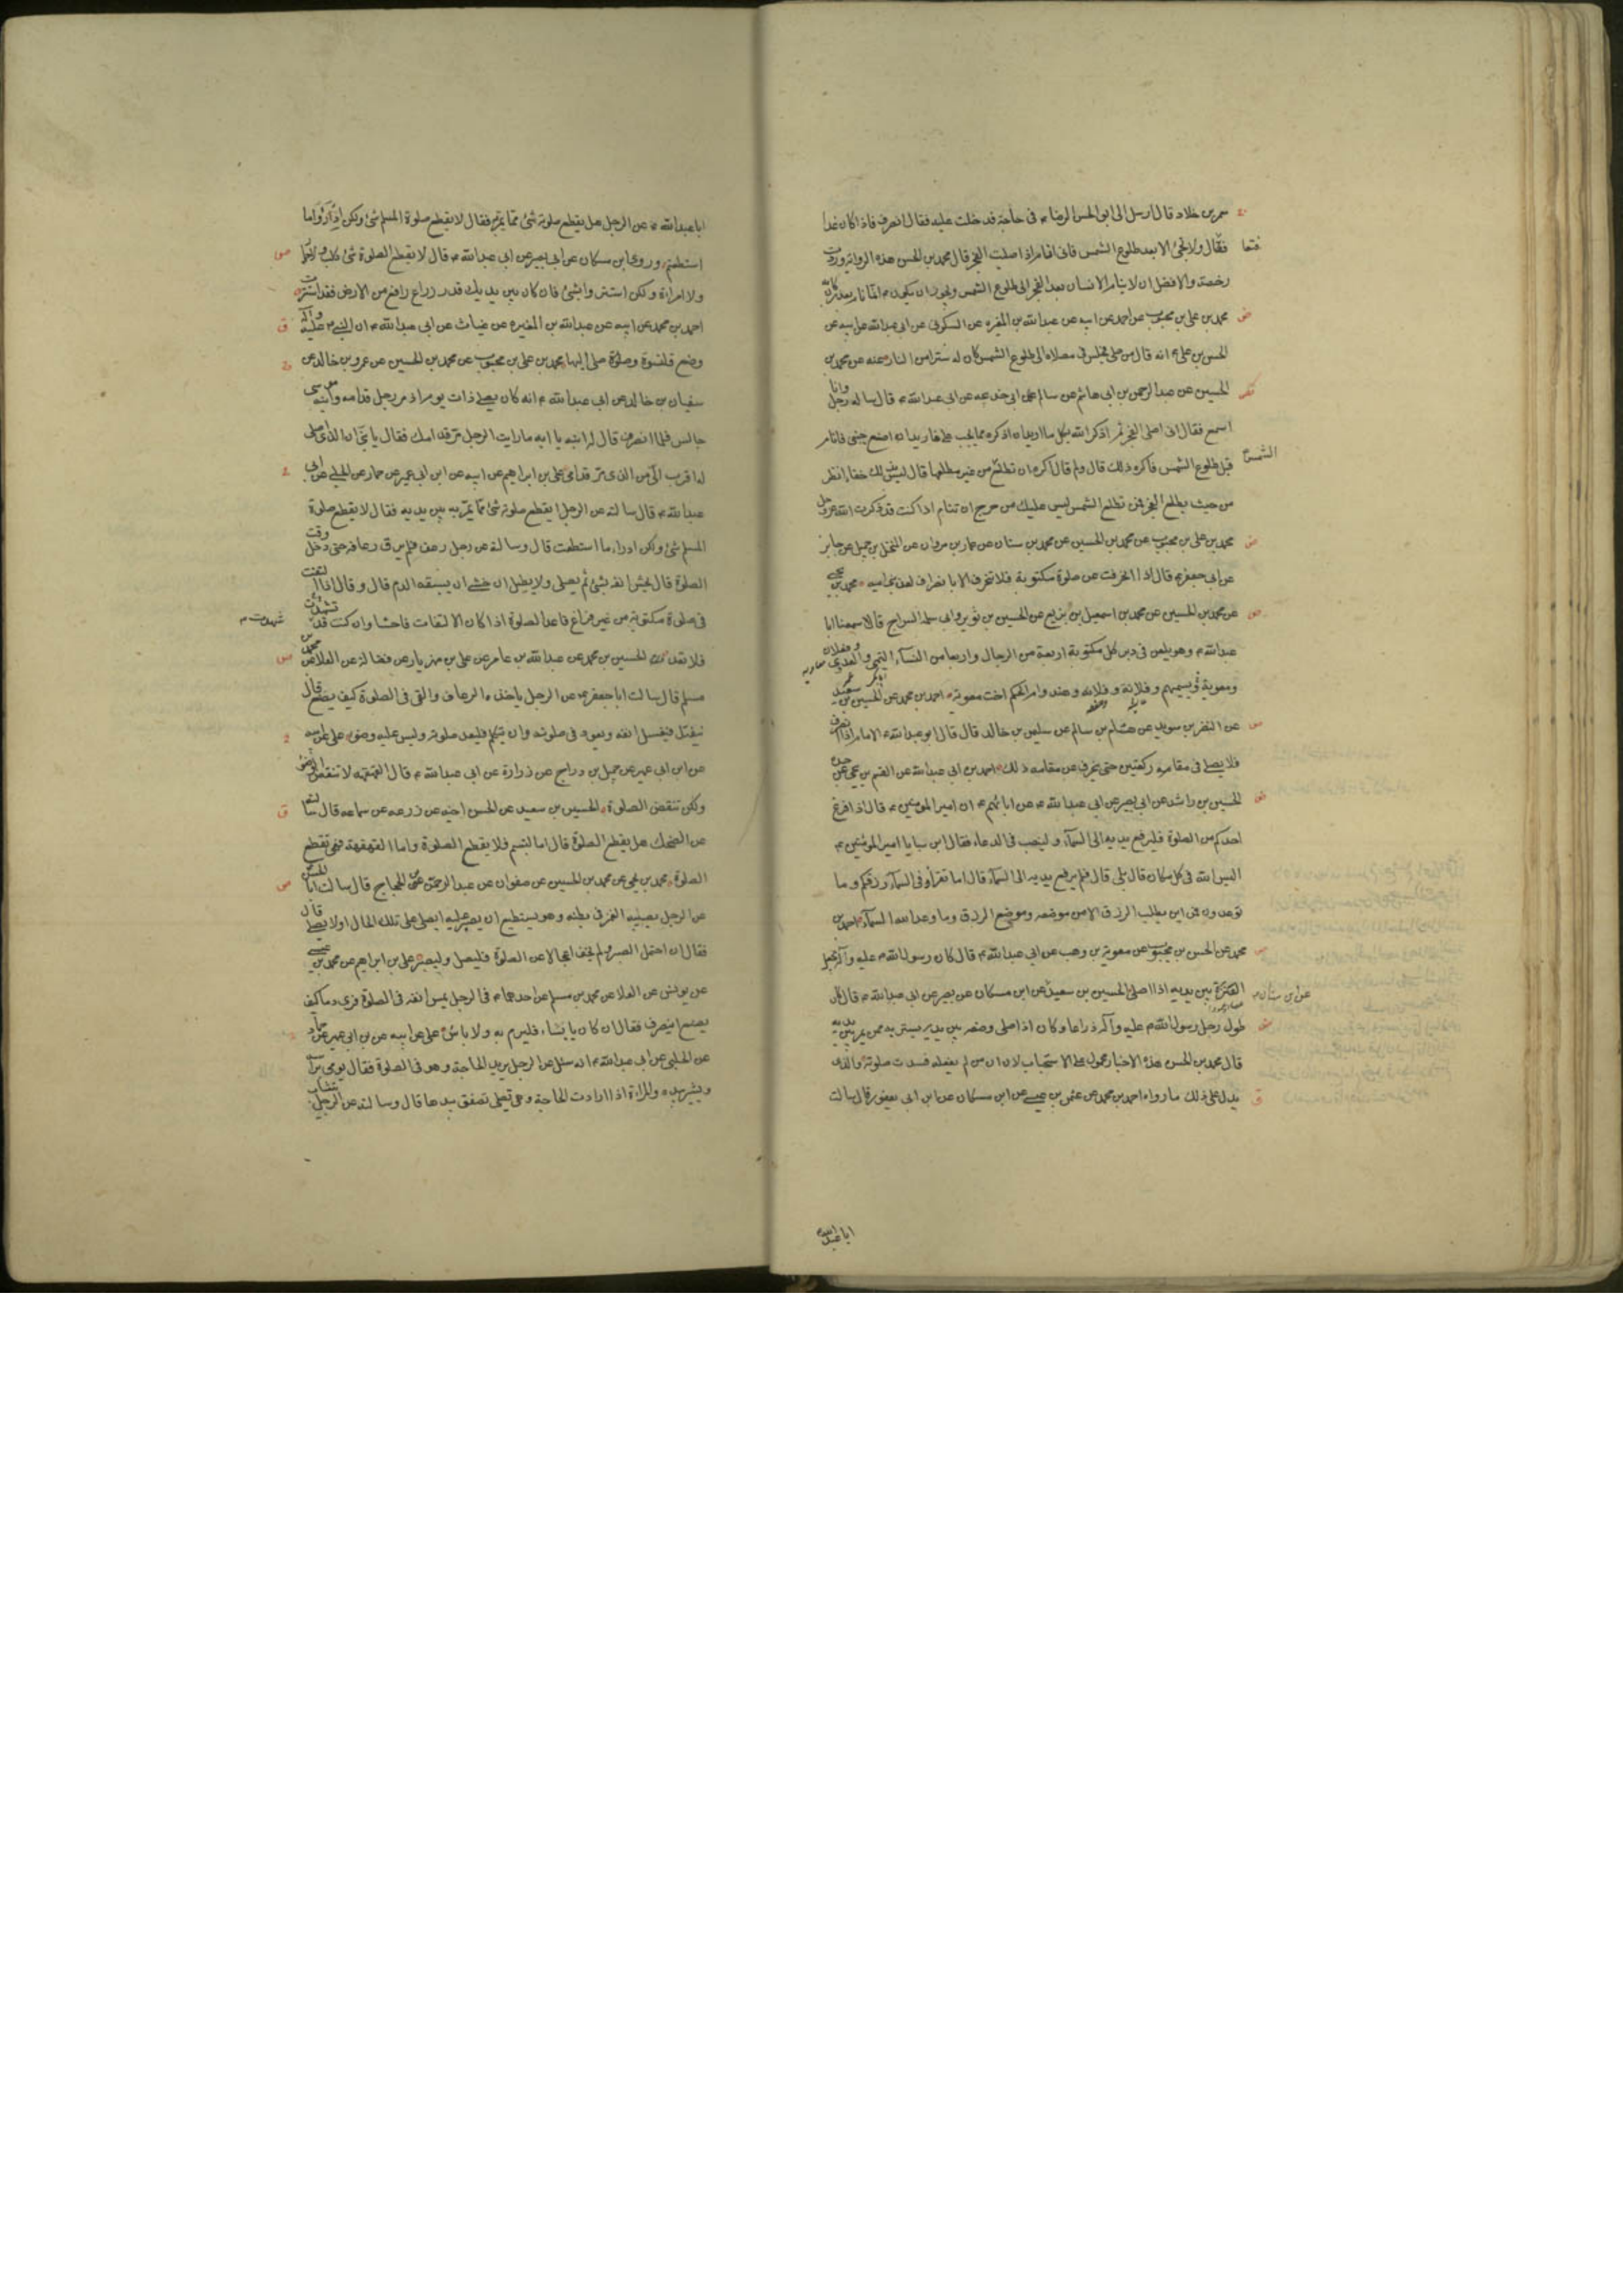 معمر بن خلاد قال ارسل الى ابو الحسن الرضا ع فى حاجة فدخلت عليه فقال انصرف فاذا كان غدا
فتعال ولا تجئ الا بعد طلوع الشمس فانى انام اذا صليت الفجر قال محمد بن الحسن هذه الرواية وردت
رخصة والافضل ان لا ينام الانسان بعد الفجر الى طلوع الشمس ويجوز ان يكون ع انما نام بعد
محمد بن على بن محبوب عن احمد عن ابيه عن عبد الله بن المغيره عن السكونى عن ابى عبد الله عن ابيه عن
الحسن بن على ع انه قال من صلى فجلس فى مصلاه الى طلوع الشمس كان له سترا من النار وعنه عن محمد بن
الحسين عن عبد الرحمن بن ابى هاشم عن سالم عن ابى خديجه عن ابى عبد الله ع قال ساله رجل وانا
اسمع فقال انى اصلى الفجر ثم اذكر الله بكل ما اريد ان اذكره مما يجب على فاريد ان اضع جنبى فانام
قبل طلوع الشمس فاكره ذلك قال ولم قال اكره ان تطلع الشمس من غير مطلعها قال ليس بذلك خفاء انظر
من حيث يطلع الفجر فمن ثم تطلع الشمس ليس عليك من حرج ان تنام اذا كنت قد ذكرت الله عز وجل
محمد بن على بن محبوب عن محمد بن الحسين عن محمد بن سنان عن عمار بن مروان عن المنخل بن جميل عن جابر
عن ابى جعفر ع قال اذا انحرفت عن صلوة مكتوبة فلا تنحرف الا بانصراف لعن بنى اميه محمد بن يحيى
عن محمد بن الحسين عن محمد بن اسمعيل بن بزيع عن الحسين بن ثوير وابى سلمة السراج قالا سمعنا ابا
عبد الله ع وهو يلعن فى دبر كل مكتوبة اربعة من الرجال واربعا من النساء التيمى والعدى وفلان
ومعوية ويسميهم وفلانة وفلانه وهند وام الحكم اخت معوية احمد بن محمد عن الحسين بن سعيد
عن النضر بن سويد عن هشام بن سالم عن سليمن بن خالد قال قال ابو عبد الله ع الامام اذا انصرف
فلا يصلى فى مقامه ركعتين حتى ينحرف عن مقامه ذلك احمد بن ابى عبد الله عن القسم بن يحيى عن جده
الحسن بن راشد عن ابى بصير عن ابى عبد الله ع عن ابائهم ع ان امير المؤمنين ع قال اذا فرغ
احدكم من الصلوة فليرفع يديه الى السمآء ولينصب فى الدعاء فقال ابن سبا يا امير المؤمنين ع
اليس الله فى كل مكان قال بلى قال فلم يرفع يديه الى السمآء قال اما تقرأ وفى السمآء رزقكم وما
توعدون فمن اين يطلب الرزق الا من موضعه وموضع الرزق وما وعد الله السمآء احمد بن
محمد عن الحسن بن محبوب عن معوية بن وهب عن ابى عبد الله ع قال كان رسول الله ص عليه وآله يجعل
العنزة بين يديه اذا صلى الحسين بن سعيد عن ابن مسكان عن بصير عن ابى عبد الله ع قال كان
طول رحل رسول الله ص عليه وآله ذراعا وكان اذا صلى وضعه بين يديه يستتر به ممن يمر بين يديه
قال محمد بن الحسن هذه الاخبار محمول على الاستحباب لان ان من لم يفعله فسدت صلوته والذى
يدل على ذلك ما رواه احمد بن محمد عن عثمن بن عيسى عن ابن مسكان عن ابن ابى يعفور قال سالت
الشمس
عن ابن سنان
ابا عبد الله
ابا عبد الله ع عن الرجل هل يقطع صلوته شئ مما يمر به فقال لا يقطع صلوة المسلم شئ ولكن ادرؤا ما
استطعتم وروى ابن مسكان عن ابى بصير عن ابى عبد الله ع قال لا يقطع الصلوة شئ كلب ولا حمار
ولا امراة ولكن استتروا بشئ فان كان بين يديك قدر ذراع رافع من الارض فقد استترت
احمد بن محمد عن ابيه عن عبد الله بن المغيره عن غياث عن ابى عبد الله ع ان النبى ص عليه وآله
وضع قلنسوة وصلوة صلى اليها محمد بن على بن محبوب عن محمد بن الحسين عن عمرو بن خالد عن
سفيان بن خالد عن ابى عبد الله ع انه كان يصلى ذات يوم اذ مر رجل قدامه وابنه موسى
جالس فلما انصرف قال له ابنه يا ابه ما رايت الرجل مر قدامك فقال يا بنى ان الذى اصلى
له اقرب الى من الذى مر قدامى على بن ابراهيم عن ابيه عن ابن ابى عمير عن حماد عن الحلبى عن ابى
عبد الله ع قال سالته عن الرجل ايقطع صلوته شئ مما يمر به بين يديه فقال لا يقطع صلوة
المسلم شئ ولكن ادراء ما استطعت قال وسالة عن رجل رعف فلم يرق رعافه حتى دخل وقت
الصلوة قال يحشو انفه بشئ ثم يصلى ولا يطيل ان خشى ان يسبقه الدم قال وقال اذا التفت
فى صلوة مكتوبة من غير فراغ فاعد الصلوة اذا كان الالتفات فاحشا وان كنت قد تشهدت
فلا تعد الحسين بن محمد عن عبد الله بن عامر عن على بن مهزيار عن فضالة عن العلا عن محمد بن
مسلم قال سالت ابا جعفر ع عن الرجل ياخذه الرعاف والقى فى الصلوة كيف يصنع قال
ينفتل فيغسل انفه ويعود فى صلوته وان تكلم فليعد صلوته وليس عليه وضوء على عن ابيه
عن ابن ابى عمير عن جميل بن دراج عن زرارة عن ابى عبد الله ع قال القهقهه لا تنقض الوضوء
ولكن تنقض الصلوة الحسين بن سعيد عن الحسن اخيه عن زرعه عن سماعه قال سالته
عن الضحك هل يقطع الصلوة قال اما التبسم فلا يقطع الصلوة واما القهقهة فهى تقطع
الصلوة محمد بن يحيى عن محمد بن الحسين عن صفوان عن عبد الرحمن بن الحجاج قال سالت ابا الحسن
عن الرجل يصيبه الغمز فى بطنه وهو يستطيع ان يصبر عليه ايصلى على تلك الحال او لا يصلى قال
فقال ان احتمل الصبر ولم يخف اعجالا عن الصلوة فليصل وليصبر على بن ابراهيم عن محمد بن عيسى
عن يونس عن العلا عن محمد بن مسلم عن احدهما ع فى الرجل يمس انفه فى الصلوة فيرى دما كيف
يصنع اينصرف فقال ان كان يابسا فليرم به ولا باس على عن ابيه عن بن ابى عمير عن حماد
عن الحلبى عن ابى عبد الله ع انه سئل عن الرجل يريد الحاجة وهو فى الصلوة فقال يومى براسه
ويشير بيده والمراة اذا ارادت الحاجة وهى تصلى تصفق بيدها قال وسالته عن الرجل يتثاب
شهدت